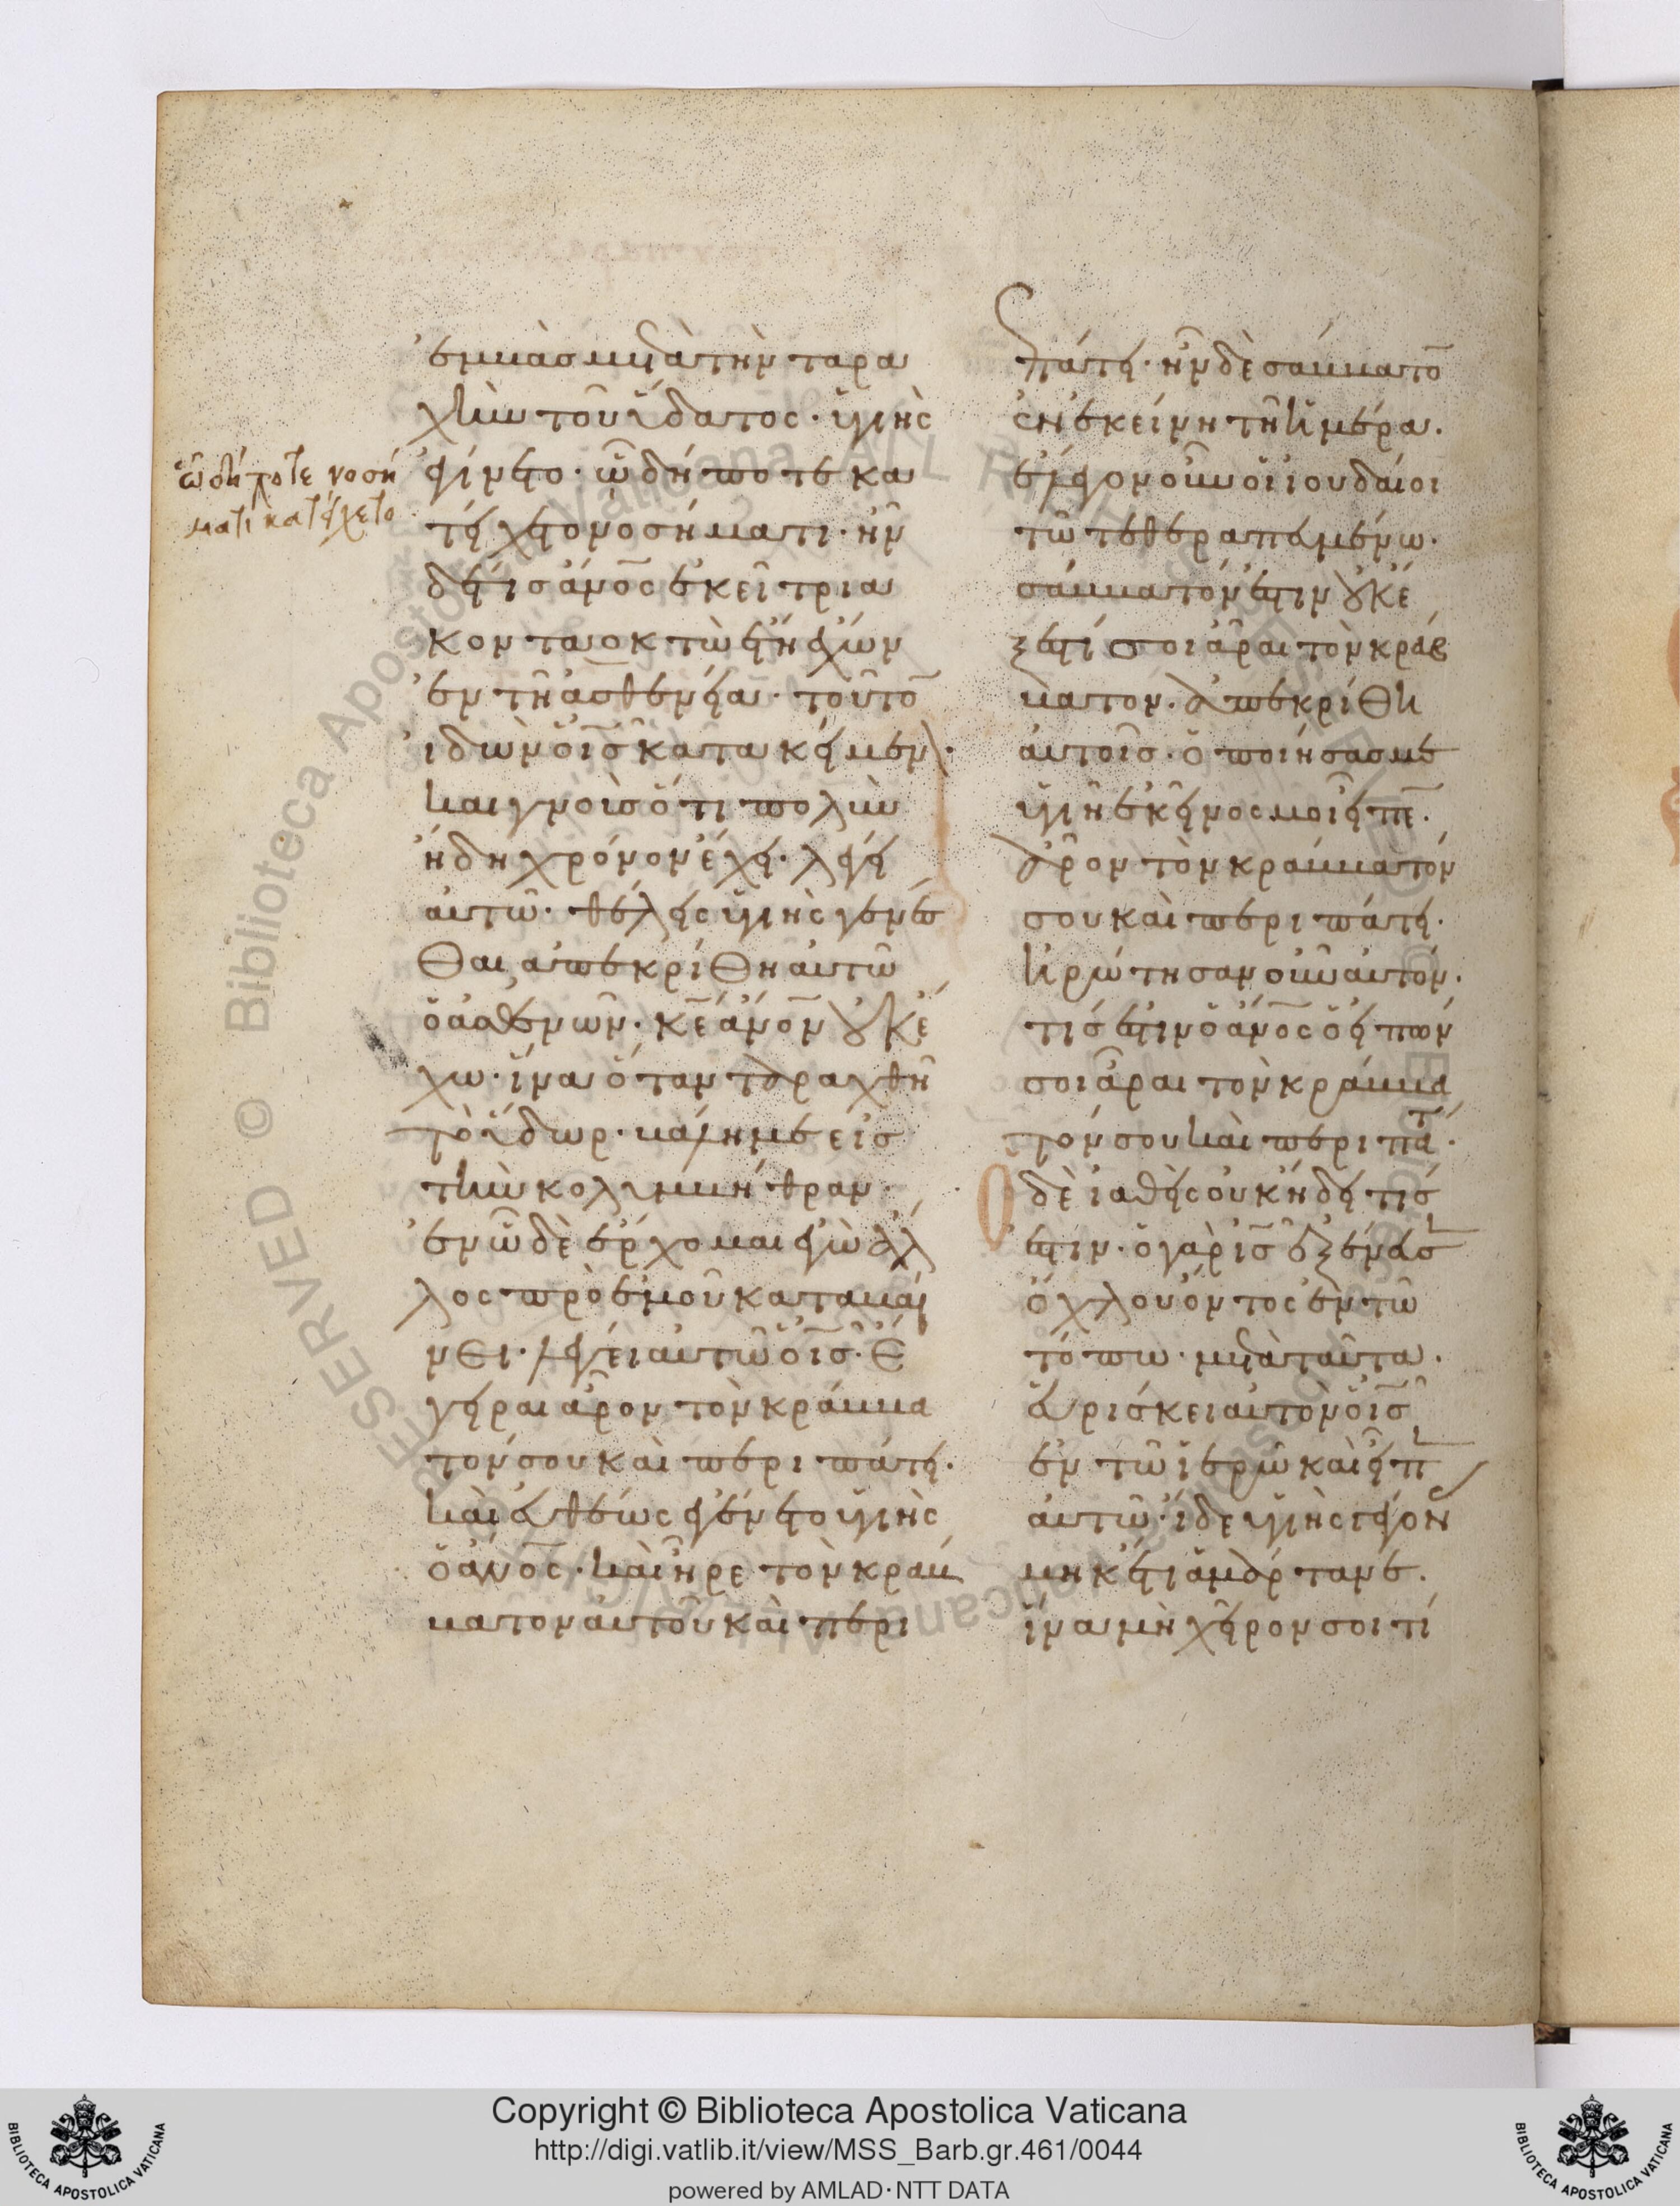 ἐμβὰσ μετὰ τὴν ταρα
χὴν τοῦ ὕδατος· ὑγιὴς
ἐγίνετο· ὧ δήποτε κα
τείχετο νοσήματι· ἦν
δέ τισ ἄνο̅ς ἐκεῖ τρια
κονταοκτὼ ἔτη ἔχων
ἐν τῆ ἀσθενεία· τοῦτο̅
ἰδὼν ὁ ι̅σ̅ κατακείμεν(ον)·
καὶ γνοὺσ ὅτι πολὺν
ἤδη χρόνον ἔχει· λέγει
αὐτῶ· θέλεις ὑγιὴς γενέσ
θαι, ἀπεκρίθη αὐτῶ
ὁ ἀσθενῶν· κ̅ε̅ ἄνο̅ν οὐκ ἔ
χω· ἵνα ὅταν ταραχθῆ
τὸ ὕδωρ· βάλη με εἰσ
τὴν κολυμβήθραν·
ἐν ὧ δὲ ἔρχομαι ἐγὼ ἄλ
λος πρὸ ἐμοῦ καταβαί
νει· λέγει αὐτῶ ὁ ι̅σ̅· ἔ
γειραι ἆρον τὸν κράββα
τόν σου καὶ περιπάτει·
καὶ εὐθέως ἐγένετο ὑγιὴς
ὁ ἄνο̅ς· καὶ ἦρε τὸν κράβ
βατον αὐτοῦ καὶ περι
ὧ δήποτε νοσή
ματι κατείχετο·
επάτει· ἦν δὲ σάββατο̅
ἐν ἐκείνη τῆ ἡμέρα·
ἔλεγον οὖν οἱ ἰουδαίοι
τῶ τεθεραπευμένω·
σάββατόν ἐστιν οὐκ ἔ
ξεστί σοι ἆραι τὸν κράβ
βατον· ἀπεκρίθη
αὐτοῖσ· ὁ ποιήσασ με
ὑγιῆ ἐκεῖνος μοι εἶπε̅·
ἆρον τὸν κράββατόν
σου καὶ περιπάτει·
ἠρώτησαν οὖν αὐτόν·
τίσ ἐστιν ὁ ἄνο̅ς ὁ εἰπών
σοι ἆραι τὸν κράββα
τόν σου καὶ περιπάτ(ει)·
Ὁ δὲ ἰαθεὶς οὐκ ἤδει τίσ
ἐστιν· ὁ γὰρ ι̅σ̅ ἐξένευσ(εν)
ὄχλου ὄντος ἐν τῶ
τόπω· μετὰ ταῦτα·
εὑρίσκει αὐτὸν ὁ ι̅σ̅
ἐν τῶ ἱερῶ καὶ εἶπ(εν)
αὐτῶ· ἴδε ὑγιὴς γέγον(ας)
μηκέτι ἁμάρτανε·
ἵνα μὴ χεῖρον σοι τί
Copyright © Biblioteca Apostolica Vaticana
http://digi.vatlib.it/view/MSS_Barb.gr.461/0044
powered by AMLAD·NTT DATA
BIBLIOTECA APOSTOLICA VATICANA
BIBLIOTECA APOSTOLICA VATICANA